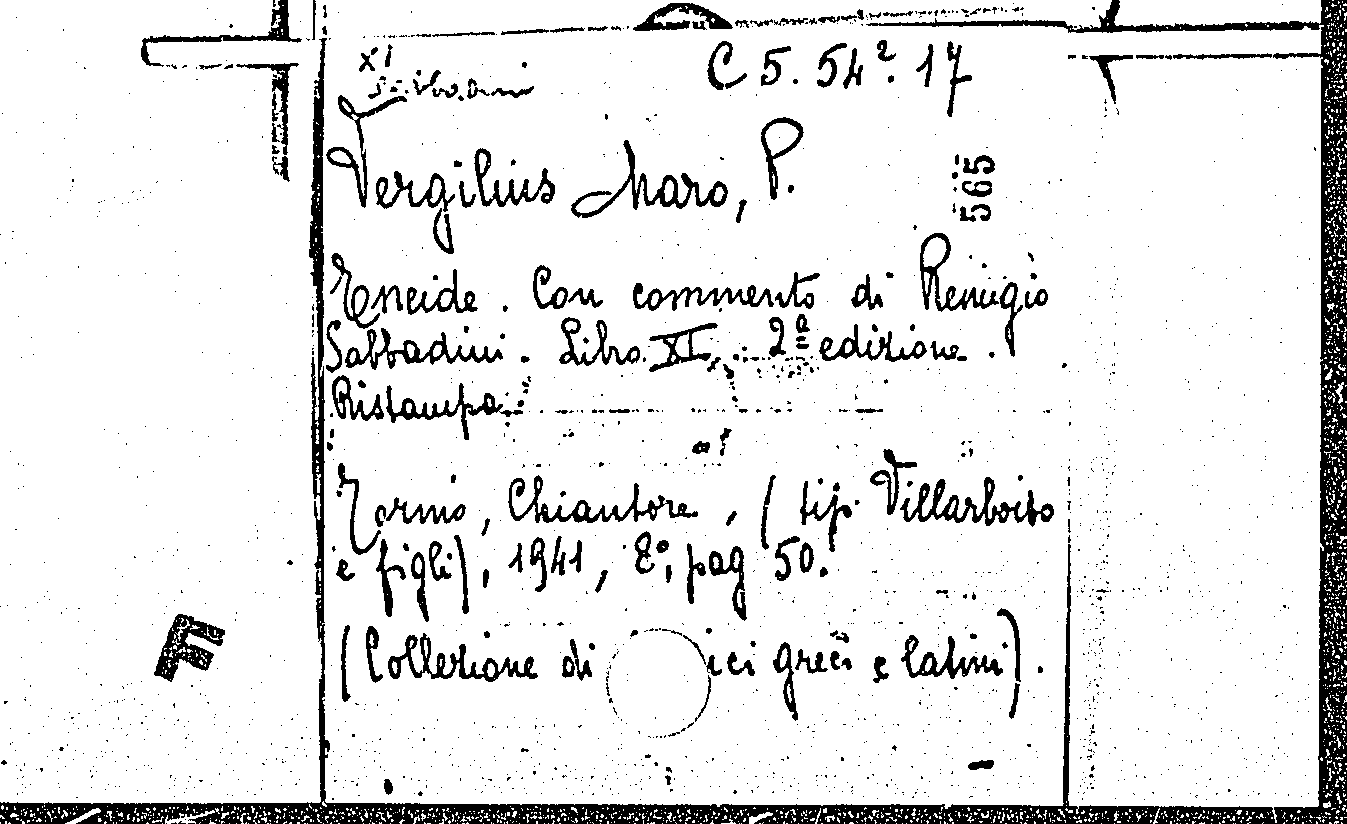 XI
C 5. 54². 17
Sabbadini
Vergilius Maro, P.
565
Eneide. Con commento di Remigio
Sabbadini. Libro XI. 2ª edizione.
Ristampa.
Torino, Chiantore, (tip. Villarboito
e figli), 1941, 8°, pag 50.
(Collezione di ici greci e latini).
F